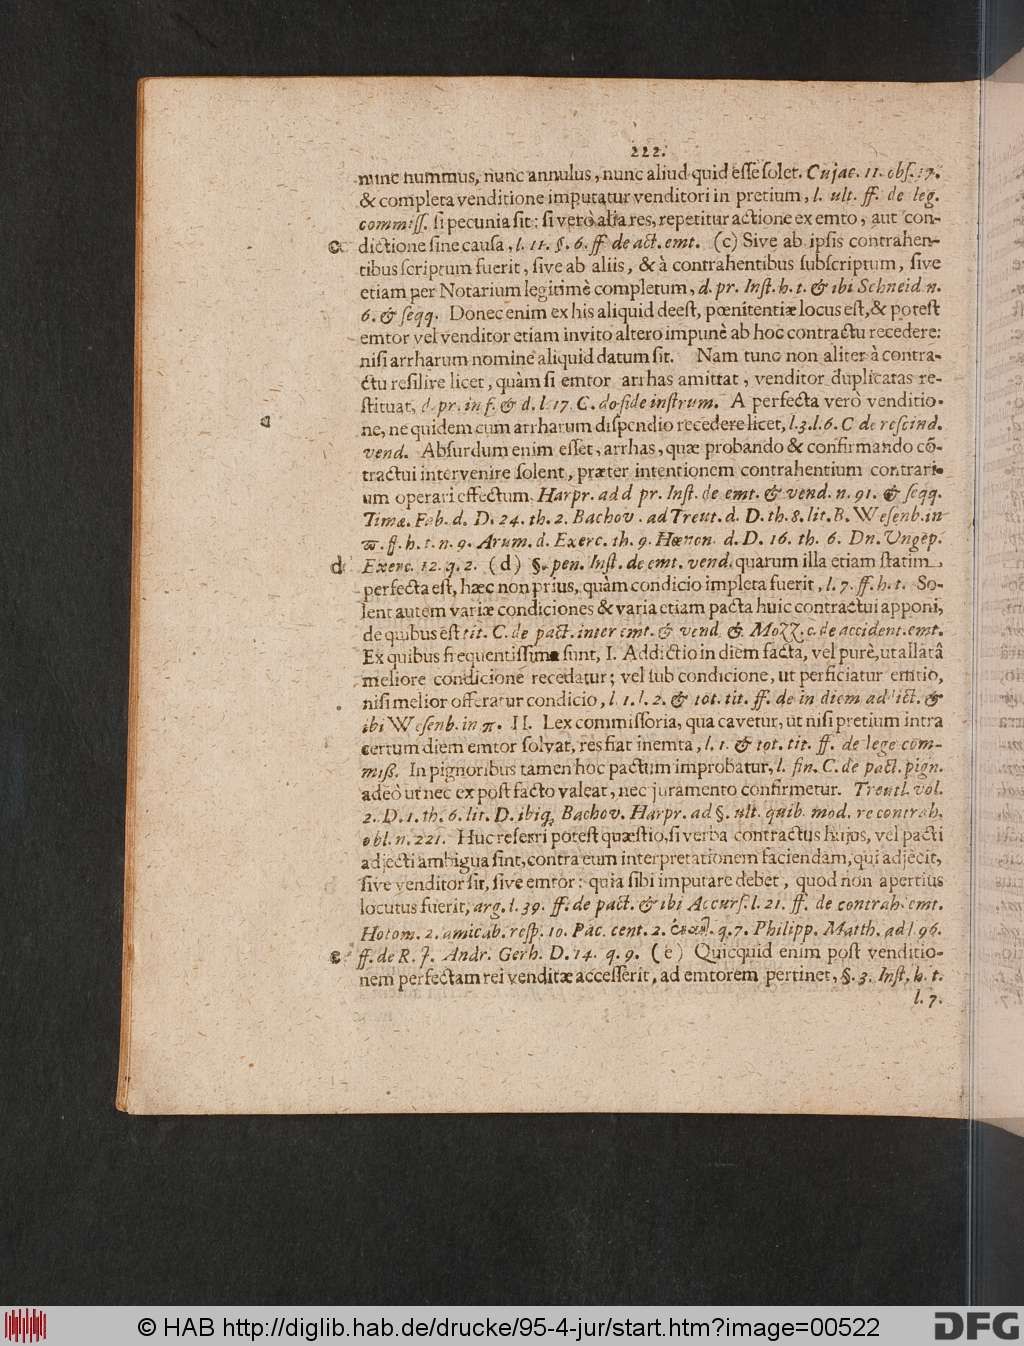 222.
nunc nummus, nunc annulus, nunc aliud quid esse solet. Cujac. 11. obs. 17.
& completa venditione imputatur venditori in pretium, l. ult. ff. de leg.
commiss. si pecunia sit: si verò alia res, repetitur actione ex emto, aut con-
c dictione sine causa, l. 11. §. 6. ff de act. emt. (c) Sive ab ipsis contrahen-
tibus scriptum fuerit, sive ab aliis, & à contrahentibus subscriptum, sive
etiam per Notarium legitimè completum, d. pr. Inst. h. t. & ibi Schneid n.
6. & seqq. Donec enim ex his aliquid deest, pœnitentiæ locus est, & potest
emtor vel venditor etiam invito altero impunè ab hoc contractu recedere:
nisi arrharum nomine aliquid datum sit. Nam tunc non aliter à contra-
ctu resilire licet, quàm si emtor arrhas amittat, venditor duplicatas re-
stituat, d. pr. in f. & d. l. 17. C. do fide instrum. A perfecta verò venditio-
ne, ne quidem cum arrharum dispendio recedere licet, l. 3. l. 6. C de rescind.
vend. Absurdum enim esset, arrhas, quæ probando & confirmando cõ-
tractui intervenire solent, præter intentionem contrahentium contrari-
um operari effectum. Harpr. add pr. Inst. de emt. & vend. n. 91. & seqq.
Timæ. Fab. d. D. 24. th. 2. Bachov. ad Treut. d. D. th. 8. lit. B. Wesenb. in
ϖ. ff. h. t. n. 9. Arum. d. Exerc. th. 9. Hœnon. d. D. 16. th. 6. Dn. Ungep.
d Exerc. 12. q. 2. (d) §. pen. Inst. de emt. vend. quarum illa etiam statim
perfecta est, hæc non prius, quàm condicio impleta fuerit, l. 7. ff. h. t. So-
lent autem variæ condiciones & varia etiam pacta huic contractui apponi,
de quibus est tit. C. de pact. inter emt. & vend & Mozz. c. de accident. emt.
Ex quibus frequentissima sunt, I. Addictio in diem facta, vel purè, ut allatâ
meliore condicione recedatur; vel sub condicione, ut perficiatur emtio,
nisi melior offeratur condicio, l. 1. l. 2. & tot. tit. ff. de in diem addict. &
ibi Wesenb. in π. II. Lex commissoria, qua cavetur, ut nisi pretium intra
certum diem emtor solvat, res fiat inemta, l. 1. & tot. tit. ff. de lege com-
miß. In pignoribus tamen hoc pactum improbatur, l. fin. C. de pact. pign.
adeò ut nec ex post facto valeat, nec juramento confirmetur. Treutl. vol.
2. D. 1. th. 6. lit. D. ibiq; Bachov. Harpr. ad §. ult. quib. mod. re contrah.
obl. n. 221. Huc referri potest quæstio, si verba contractus hujus, vel pacti
adjecti ambigua sint, contra eum interpretationem faciendam, qui adjecit,
sive venditor sit, sive emtor: quia sibi imputare debet, quod non apertius
locutus fuerit, arg. l. 39. ff. de pact. & ibi Accurs. l. 21. ff. de contrah. emt.
Hotom. 2. amicab. resp. 10. Pac. cent. 2. q. 7. Philipp. Matth. ad l. 96.
e ff. de R. J. Andr. Gerh. D. 14. q. 9. (e) Quicquid enim post venditio-
nem perfectam rei venditæ accesserit, ad emtorem pertinet, §. 3. Inst. h. t.
l. 7.
© HAB http://diglib.hab.de/drucke/95-4-jur/start.htm?image=00522
DFG